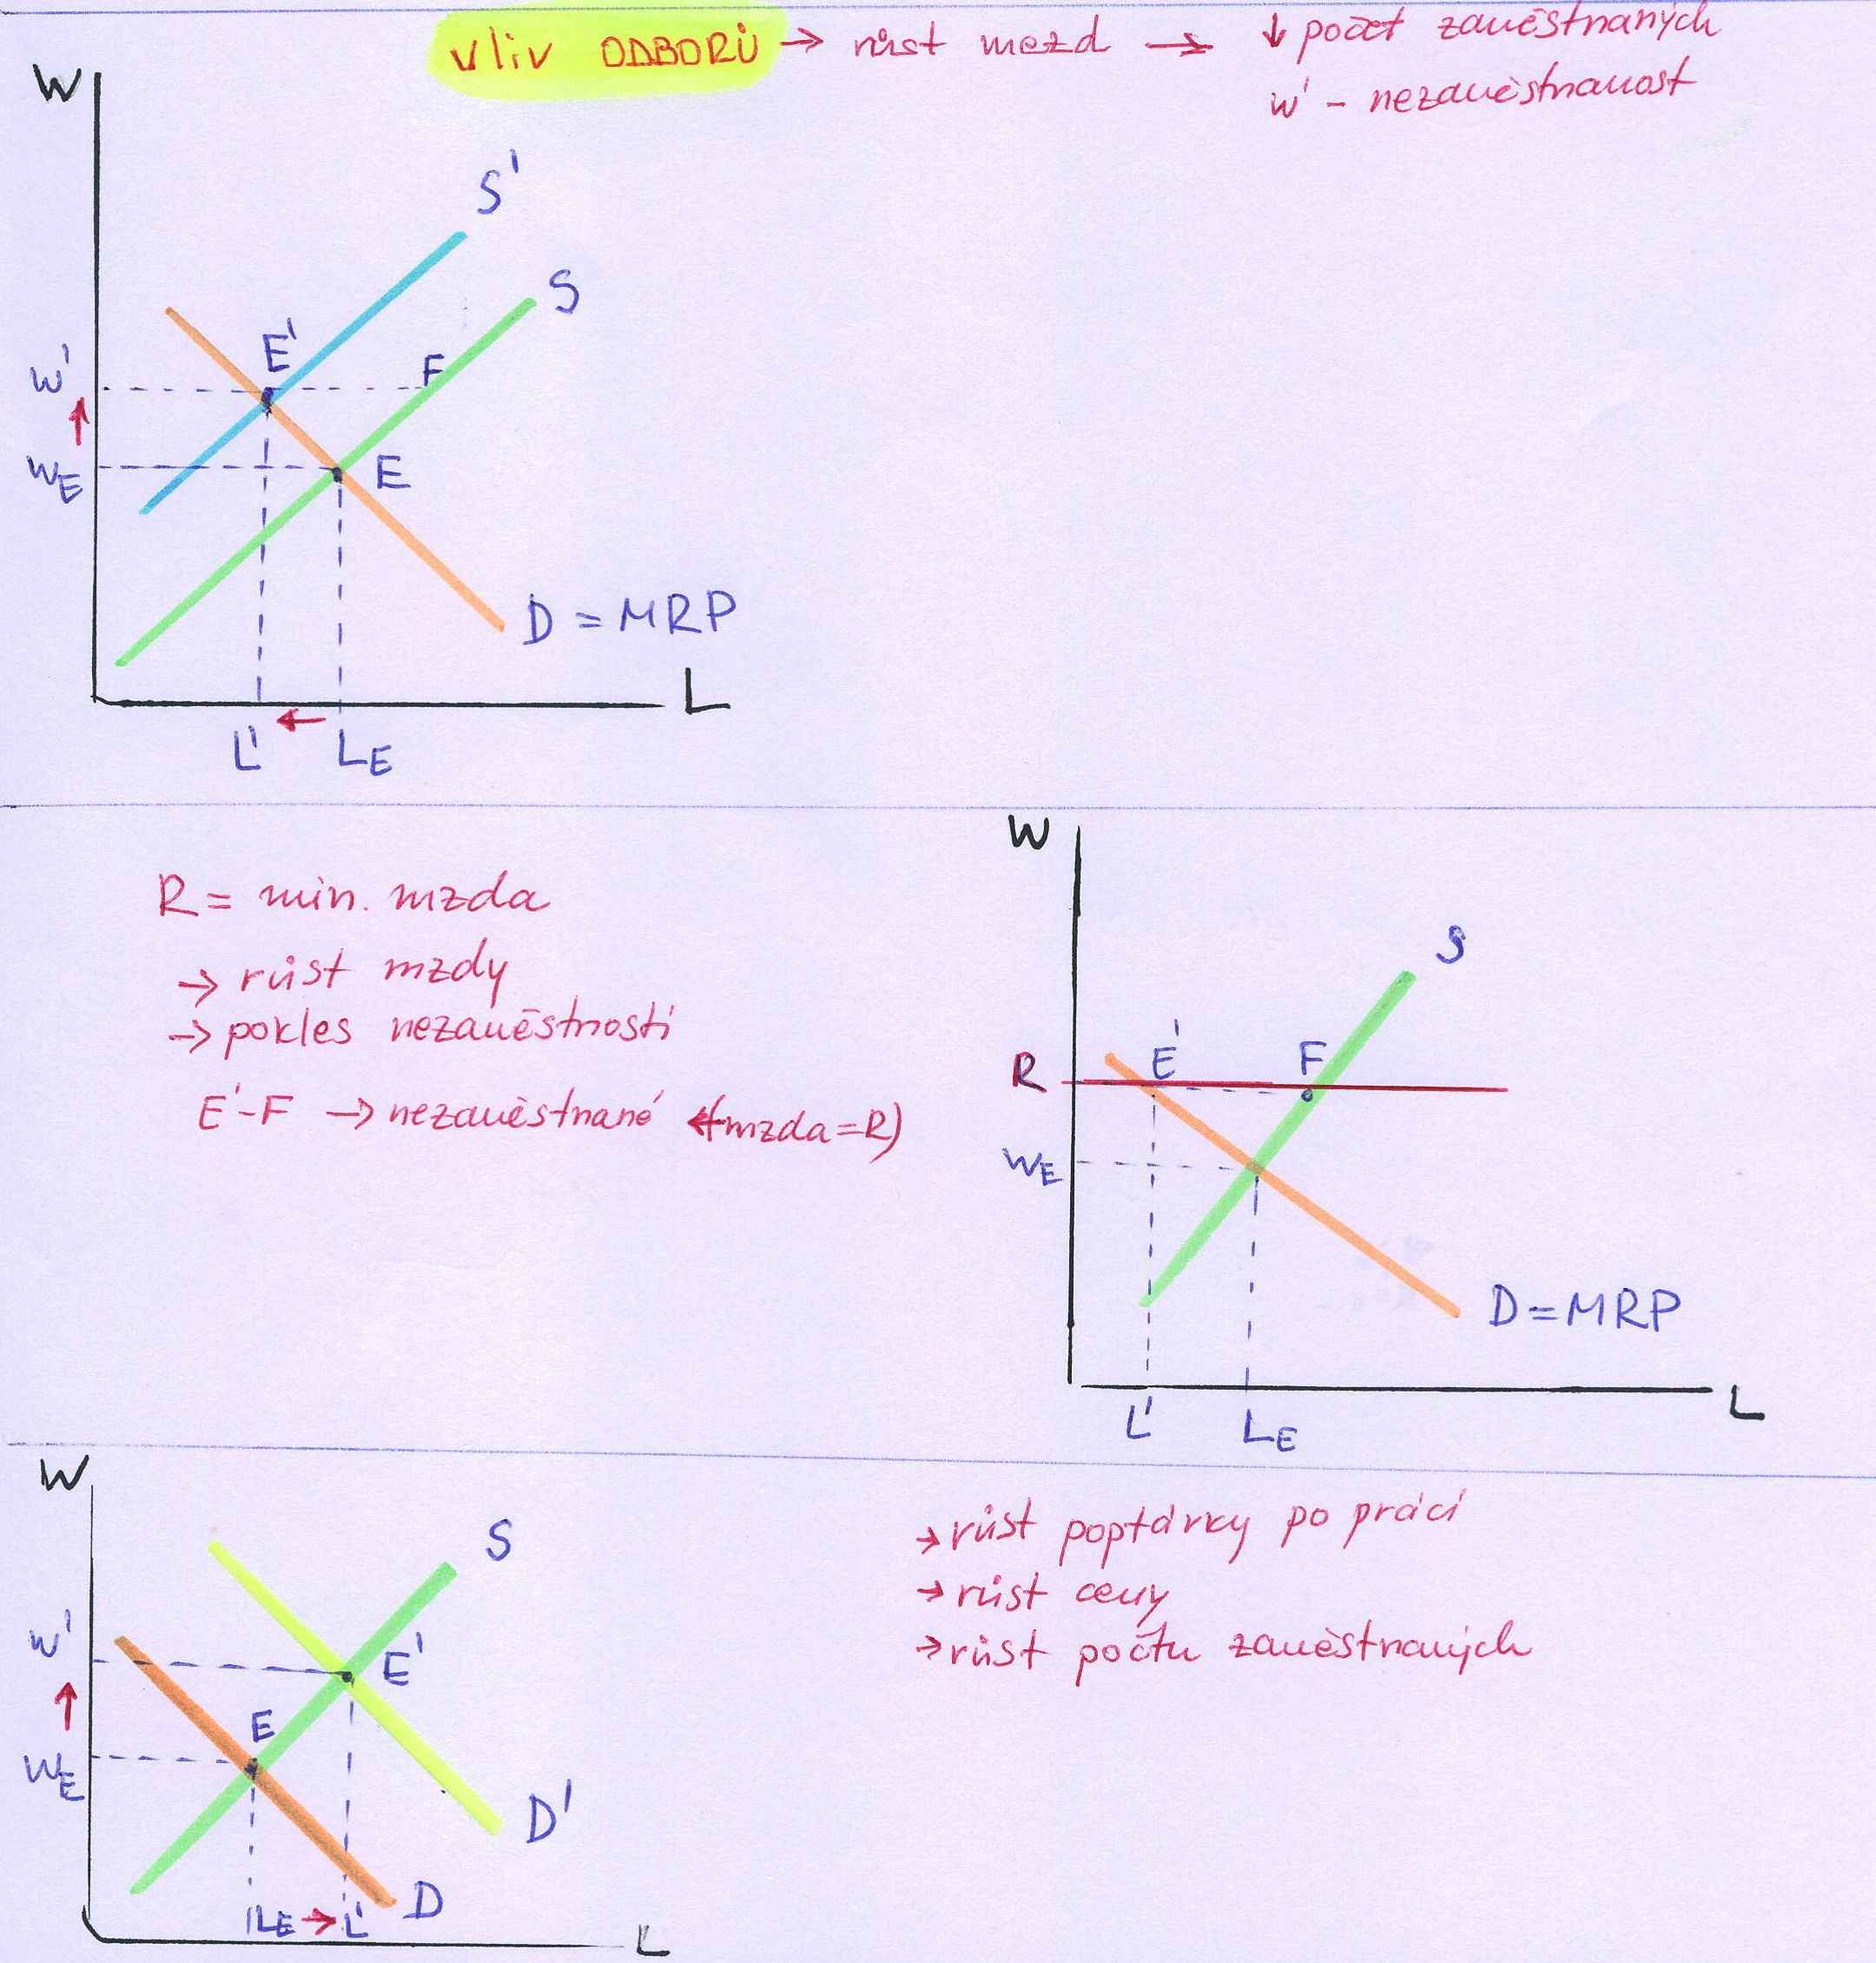 vliv ODBORŮ → růst mezd → ↓ počet zaměstnaných
w' - nezaměstnanost
W
S'
S
E'
F
w'
WE
E
D = MRP
L
L' LE
R = min. mzda
→ růst mzdy
→ pokles nezaměstnosti
E'-F → nezaměstnané ←(mzda=R)
W
S
R
E'
F
WE
D=MRP
L
L' LE
W
S
w'
E'
E
WE
D'
D
LE → L'
L
→ růst poptávky po práci
→ růst ceny
→ růst počtu zaměstnaných